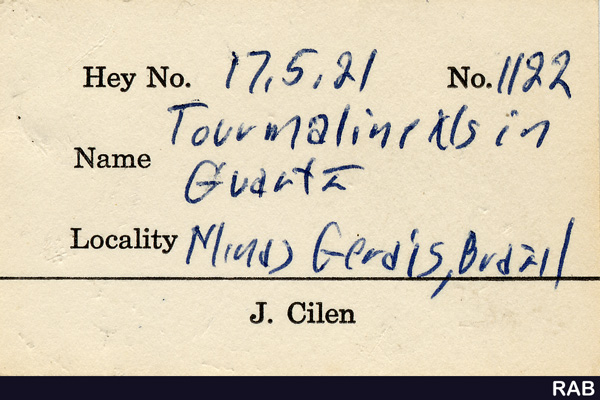 Hey No. 17.5.21 No. 1122
Name Tourmaline xls in
Quartz
Locality Minas Gerais, Brazil
J. Cilen
RAB